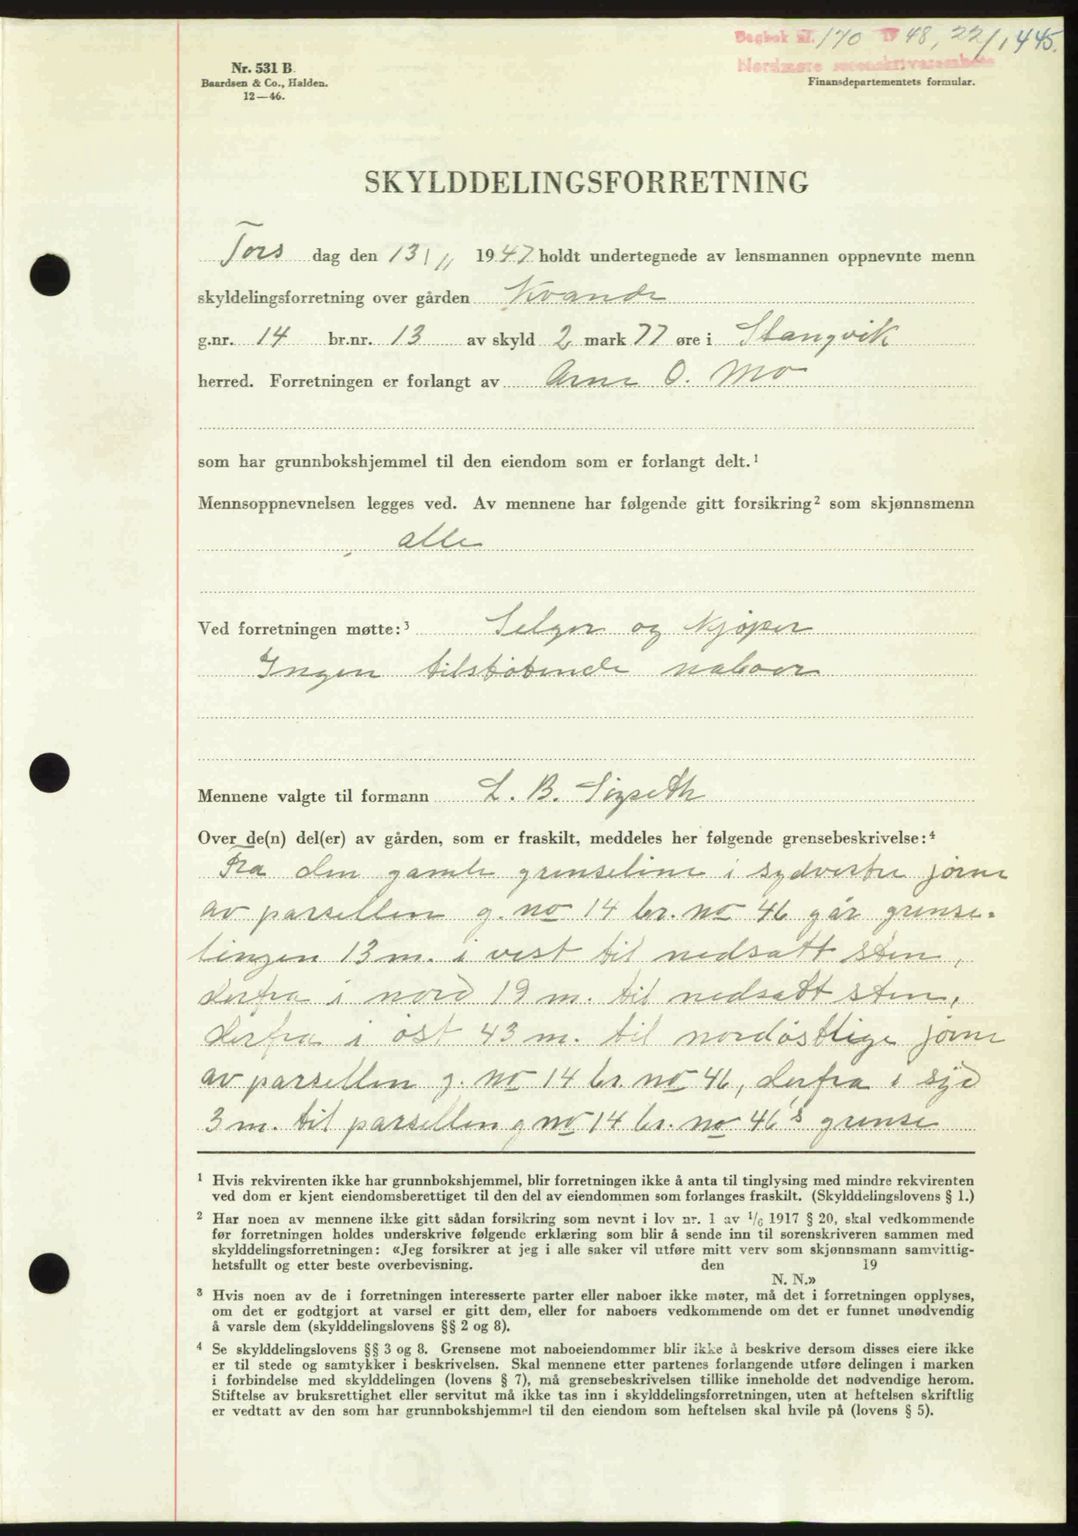 Dagbok nr. 170 19 48, 22/1 445.
Nordmøre sorenskriverembete
Nr. 531 B.
Baardsen & Co., Halden.
12—46.
Finansdepartementets formular.
SKYLDDELINGSFORRETNING
Tors dag den 13/11 1947 holdt undertegnede av lensmannen oppnevnte menn
skyldelingsforretning over gården Kvande
g.nr. 14 br.nr. 13 av skyld 2 mark 77 øre i Stangvik
herred. Forretningen er forlangt av Arne O. Mo
som har grunnbokshjemmel til den eiendom som er forlangt delt.¹
Mennsoppnevnelsen legges ved. Av mennene har følgende gitt forsikring² som skjønnsmenn
alle
Ved forretningen møtte:³ Selger og kjøper
Ingen tilstøtende naboer
Mennene valgte til formann L. B. Sigseth
Over de(n) del(er) av gården, som er fraskilt, meddeles her følgende grensebeskrivelse:⁴
Fra den gamle grenseline i sydvestre jørne
av parsellen g. no 14 br. no 46 går grense-
lingen 13 m. i vest til nedsatt sten,
derfra i nord 19 m. til nedsatt sten,
derfra i øst 43 m. til nordøstlige jørne
av parsellen g. no 14 br. no 46, derfra i syd
3 m. til parsellen g no 14 br. no 46's grense
¹ Hvis rekvirenten ikke har grunnbokshjemmel, blir forretningen ikke å anta til tinglysing med mindre rekvirenten
ved dom er kjent eiendomsberettiget til den del av eiendommen som forlanges fraskilt. (Skylddelingslovens § 1.)
² Har noen av mennene ikke gitt sådan forsikring som nevnt i lov nr. 1 av 1/6 1917 § 20, skal vedkommende
før forretningen holdes underskrive følgende erklæring som blir å sende inn til sorenskriveren sammen med
skylddelingsforretningen: «Jeg forsikrer at jeg i alle saker vil utføre mitt verv som skjønnsmann samvittig-
hetsfullt og etter beste overbevisning. den 19
N. N.»
³ Hvis noen av de i forretningen interesserte parter eller naboer ikke møter, må det i forretningen opplyses,
om det er godtgjort at varsel er gitt dem, eller for naboers vedkommende om det er funnet unødvendig
å varsle dem (skylddelingslovens §§ 2 og 8).
⁴ Se skylddelingslovens §§ 3 og 8. Grensene mot naboeiendommer blir ikke å beskrive dersom disses eiere ikke
er til stede og samtykker i beskrivelsen. Skal mennene etter partenes forlangende utføre delingen i marken
i forbindelse med skylddelingen (lovens § 7), må grensebeskrivelsen tillike inneholde det nødvendige herom.
Stiftelse av bruksrettighet eller servitut må ikke tas inn i skylddelingsforretningen, uten at heftelsen skriftlig
er vedtatt av den som har grunnbokshjemmel til den eiendom som heftelsen skal hvile på (lovens § 5).